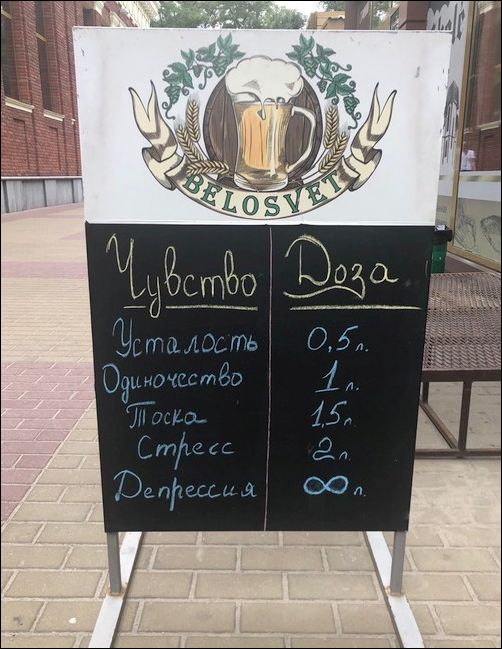 BELOSVET
Чувство Доза
Усталость 0,5 л.
Одиночество 1 л.
Тоска 1,5 л.
Стресс 2 л.
Депрессия ∞ л.